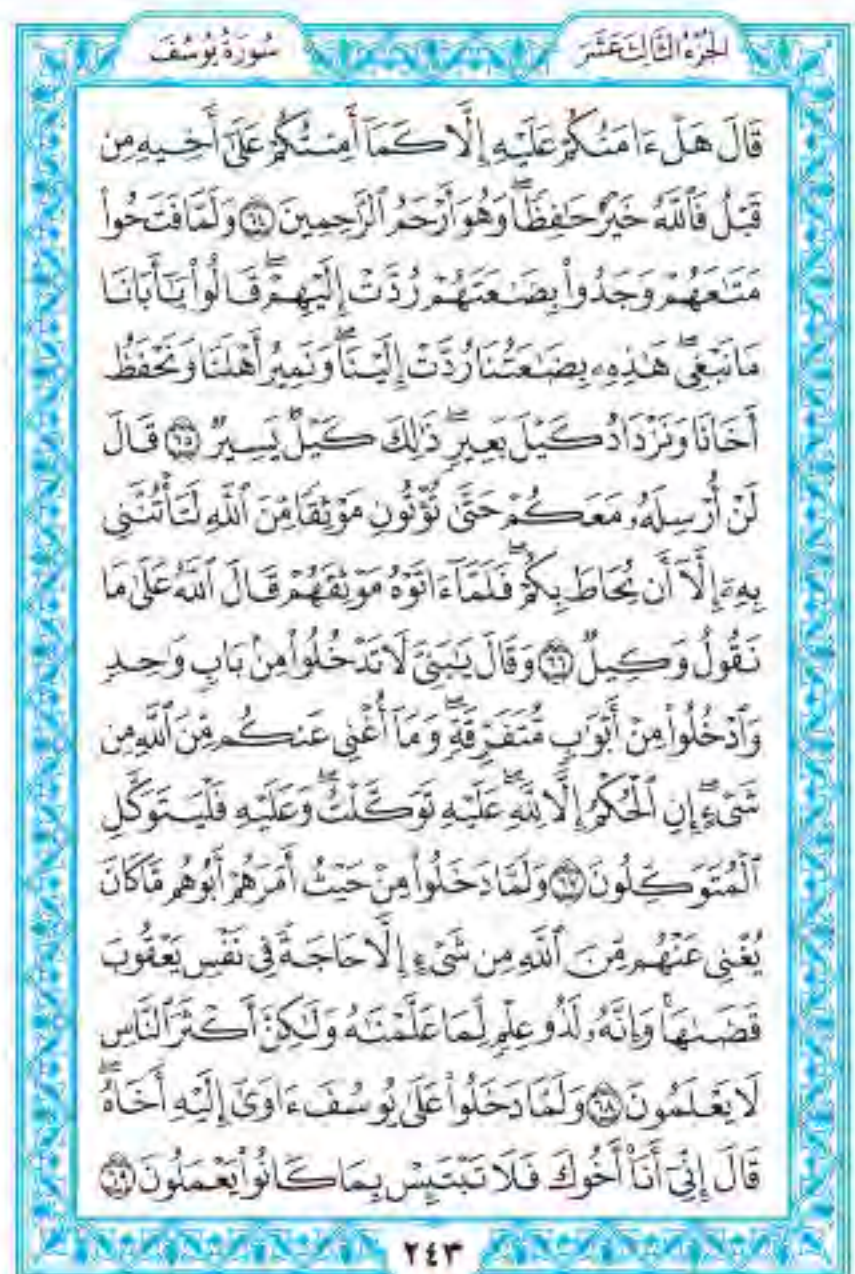 الجُزْءُ الثَّالِثَ عَشَرَ
سُورَةُ يُوسُفَ
قَالَ هَلْ ءَامَنُكُمْ عَلَيْهِ إِلَّا كَمَآ أَمِنتُكُمْ عَلَىٰٓ أَخِيهِ مِن
قَبْلُ فَٱللَّهُ خَيْرٌ حَـٰفِظًاۖ وَهُوَ أَرْحَمُ ٱلرَّٰحِمِينَ ٦٤ وَلَمَّا فَتَحُوا۟
مَتَـٰعَهُمْ وَجَدُوا۟ بِضَـٰعَتَهُمْ رُدَّتْ إِلَيْهِمْۖ قَالُوا۟ يَـٰٓأَبَانَا
مَا نَبْغِىۖ هَـٰذِهِۦ بِضَـٰعَتُنَا رُدَّتْ إِلَيْنَاۖ وَنَمِيرُ أَهْلَنَا وَنَحْفَظُ
أَخَانَا وَنَزْدَادُ كَيْلَ بَعِيرٍۖ ذَٰلِكَ كَيْلٌ يَسِيرٌ ٦٥ قَالَ
لَنْ أُرْسِلَهُۥ مَعَكُمْ حَتَّىٰ تُؤْتُونِ مَوْثِقًا مِّنَ ٱللَّهِ لَتَأْتُنَّنِى
بِهِۦٓ إِلَّآ أَن يُحَاطَ بِكُمْۖ فَلَمَّآ ءَاتَوْهُ مَوْثِقَهُمْ قَالَ ٱللَّهُ عَلَىٰ مَا
نَقُولُ وَكِيلٌ ٦٦ وَقَالَ يَـٰبَنِىَّ لَا تَدْخُلُوا۟ مِنۢ بَابٍ وَٰحِدٍ
وَٱدْخُلُوا۟ مِنْ أَبْوَٰبٍ مُّتَفَرِّقَةٍۖ وَمَآ أُغْنِى عَنكُم مِّنَ ٱللَّهِ مِن
شَىْءٍۖ إِنِ ٱلْحُكْمُ إِلَّا لِلَّهِۖ عَلَيْهِ تَوَكَّلْتُۖ وَعَلَيْهِ فَلْيَتَوَكَّلِ
ٱلْمُتَوَكِّلُونَ ٦٧ وَلَمَّا دَخَلُوا۟ مِنْ حَيْثُ أَمَرَهُمْ أَبُوهُم مَّا كَانَ
يُغْنِى عَنْهُم مِّنَ ٱللَّهِ مِن شَىْءٍ إِلَّا حَاجَةً فِى نَفْسِ يَعْقُوبَ
قَضَىٰهَاۚ وَإِنَّهُۥ لَذُو عِلْمٍ لِّمَا عَلَّمْنَـٰهُ وَلَـٰكِنَّ أَكْثَرَ ٱلنَّاسِ
لَا يَعْلَمُونَ ٦٨ وَلَمَّا دَخَلُوا۟ عَلَىٰ يُوسُفَ ءَاوَىٰٓ إِلَيْهِ أَخَاهُۖ
قَالَ إِنِّىٓ أَنَا۠ أَخُوكَ فَلَا تَبْتَئِسْ بِمَا كَانُوا۟ يَعْمَلُونَ ٦٩
٢٤٣